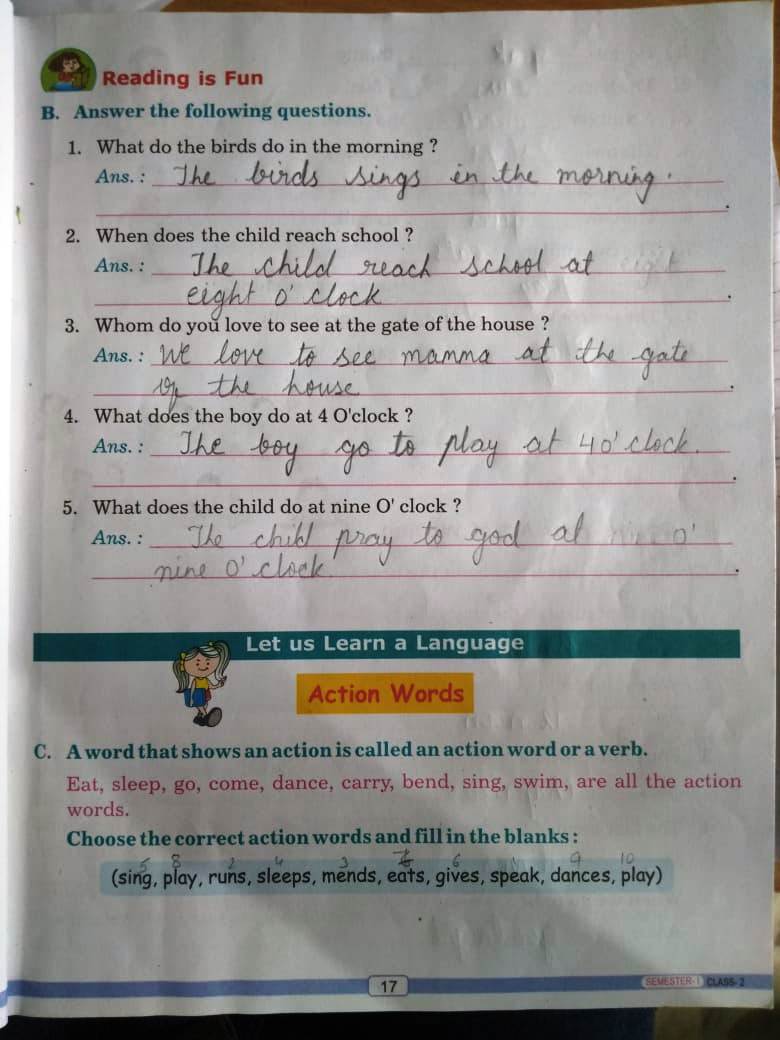 Reading is Fun
B. Answer the following questions.
1. What do the birds do in the morning ?
Ans. : The birds sings in the morning.
.
2. When does the child reach school ?
Ans. : The child reach school at eight
eight o' clock .
3. Whom do you love to see at the gate of the house ?
Ans. : We love to see mamma at the gate
of the house .
4. What does the boy do at 4 O'clock ?
Ans. : The boy go to play at 4 o' clock.
.
5. What does the child do at nine O' clock ?
Ans. : The child pray to god at nine o'
nine o' clock .
Let us Learn a Language
Action Words
C. A word that shows an action is called an action word or a verb.
Eat, sleep, go, come, dance, carry, bend, sing, swim, are all the action
words.
Choose the correct action words and fill in the blanks :
5 8 2 4 3 7 6 1 9 10
(sing, play, runs, sleeps, mends, eats, gives, speak, dances, play)
17
SEMESTER-I CLASS-2